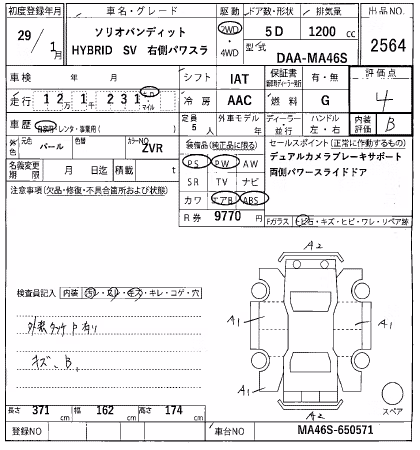 初度登録年月 車名・グレード 駆動 ドア数・形状 排気量 出品NO.
29/1月 ソリオバンディット 2WD・4WD 5D 1200cc 2564
HYBRID SV 右側パワスラ 型式 DAA-MA46S
車検 年 月 シフト IAT 保証書 有・無 評価点
走行 12万1千231 km マイル 冷房 AAC 燃料 G 4
車歴 自家用 レンタ・事業用( ) 定員 5人 外車モデル 年 ディーラー・並行 ハンドル 左・右 内装評価 B
外色 元色 パール 色替 カラーNO ZVR 装備品(純正品に限る) セールスポイント(正常に作動するもの)
名義変更期限 月 日迄 積載 t PS PW AW デュアルカメラブレーキサポート
注意事項(欠品・修復・不具合箇所および状態) SR TV ナビ 両側パワースライドドア
カワ エアB ABS
R券 9770円 Fガラス トビ石・キズ・ヒビ・ワレ・リペア跡
A2
検査員記入 内装 汚・スレ・キズ・キレ・コゲ・穴
A1 A1
外装タッチP有り
キズ、B,
A1 A1
スペア
A2
長さ 371cm 幅 162cm 高さ 174cm
登録NO 車台NO MA46S-650571